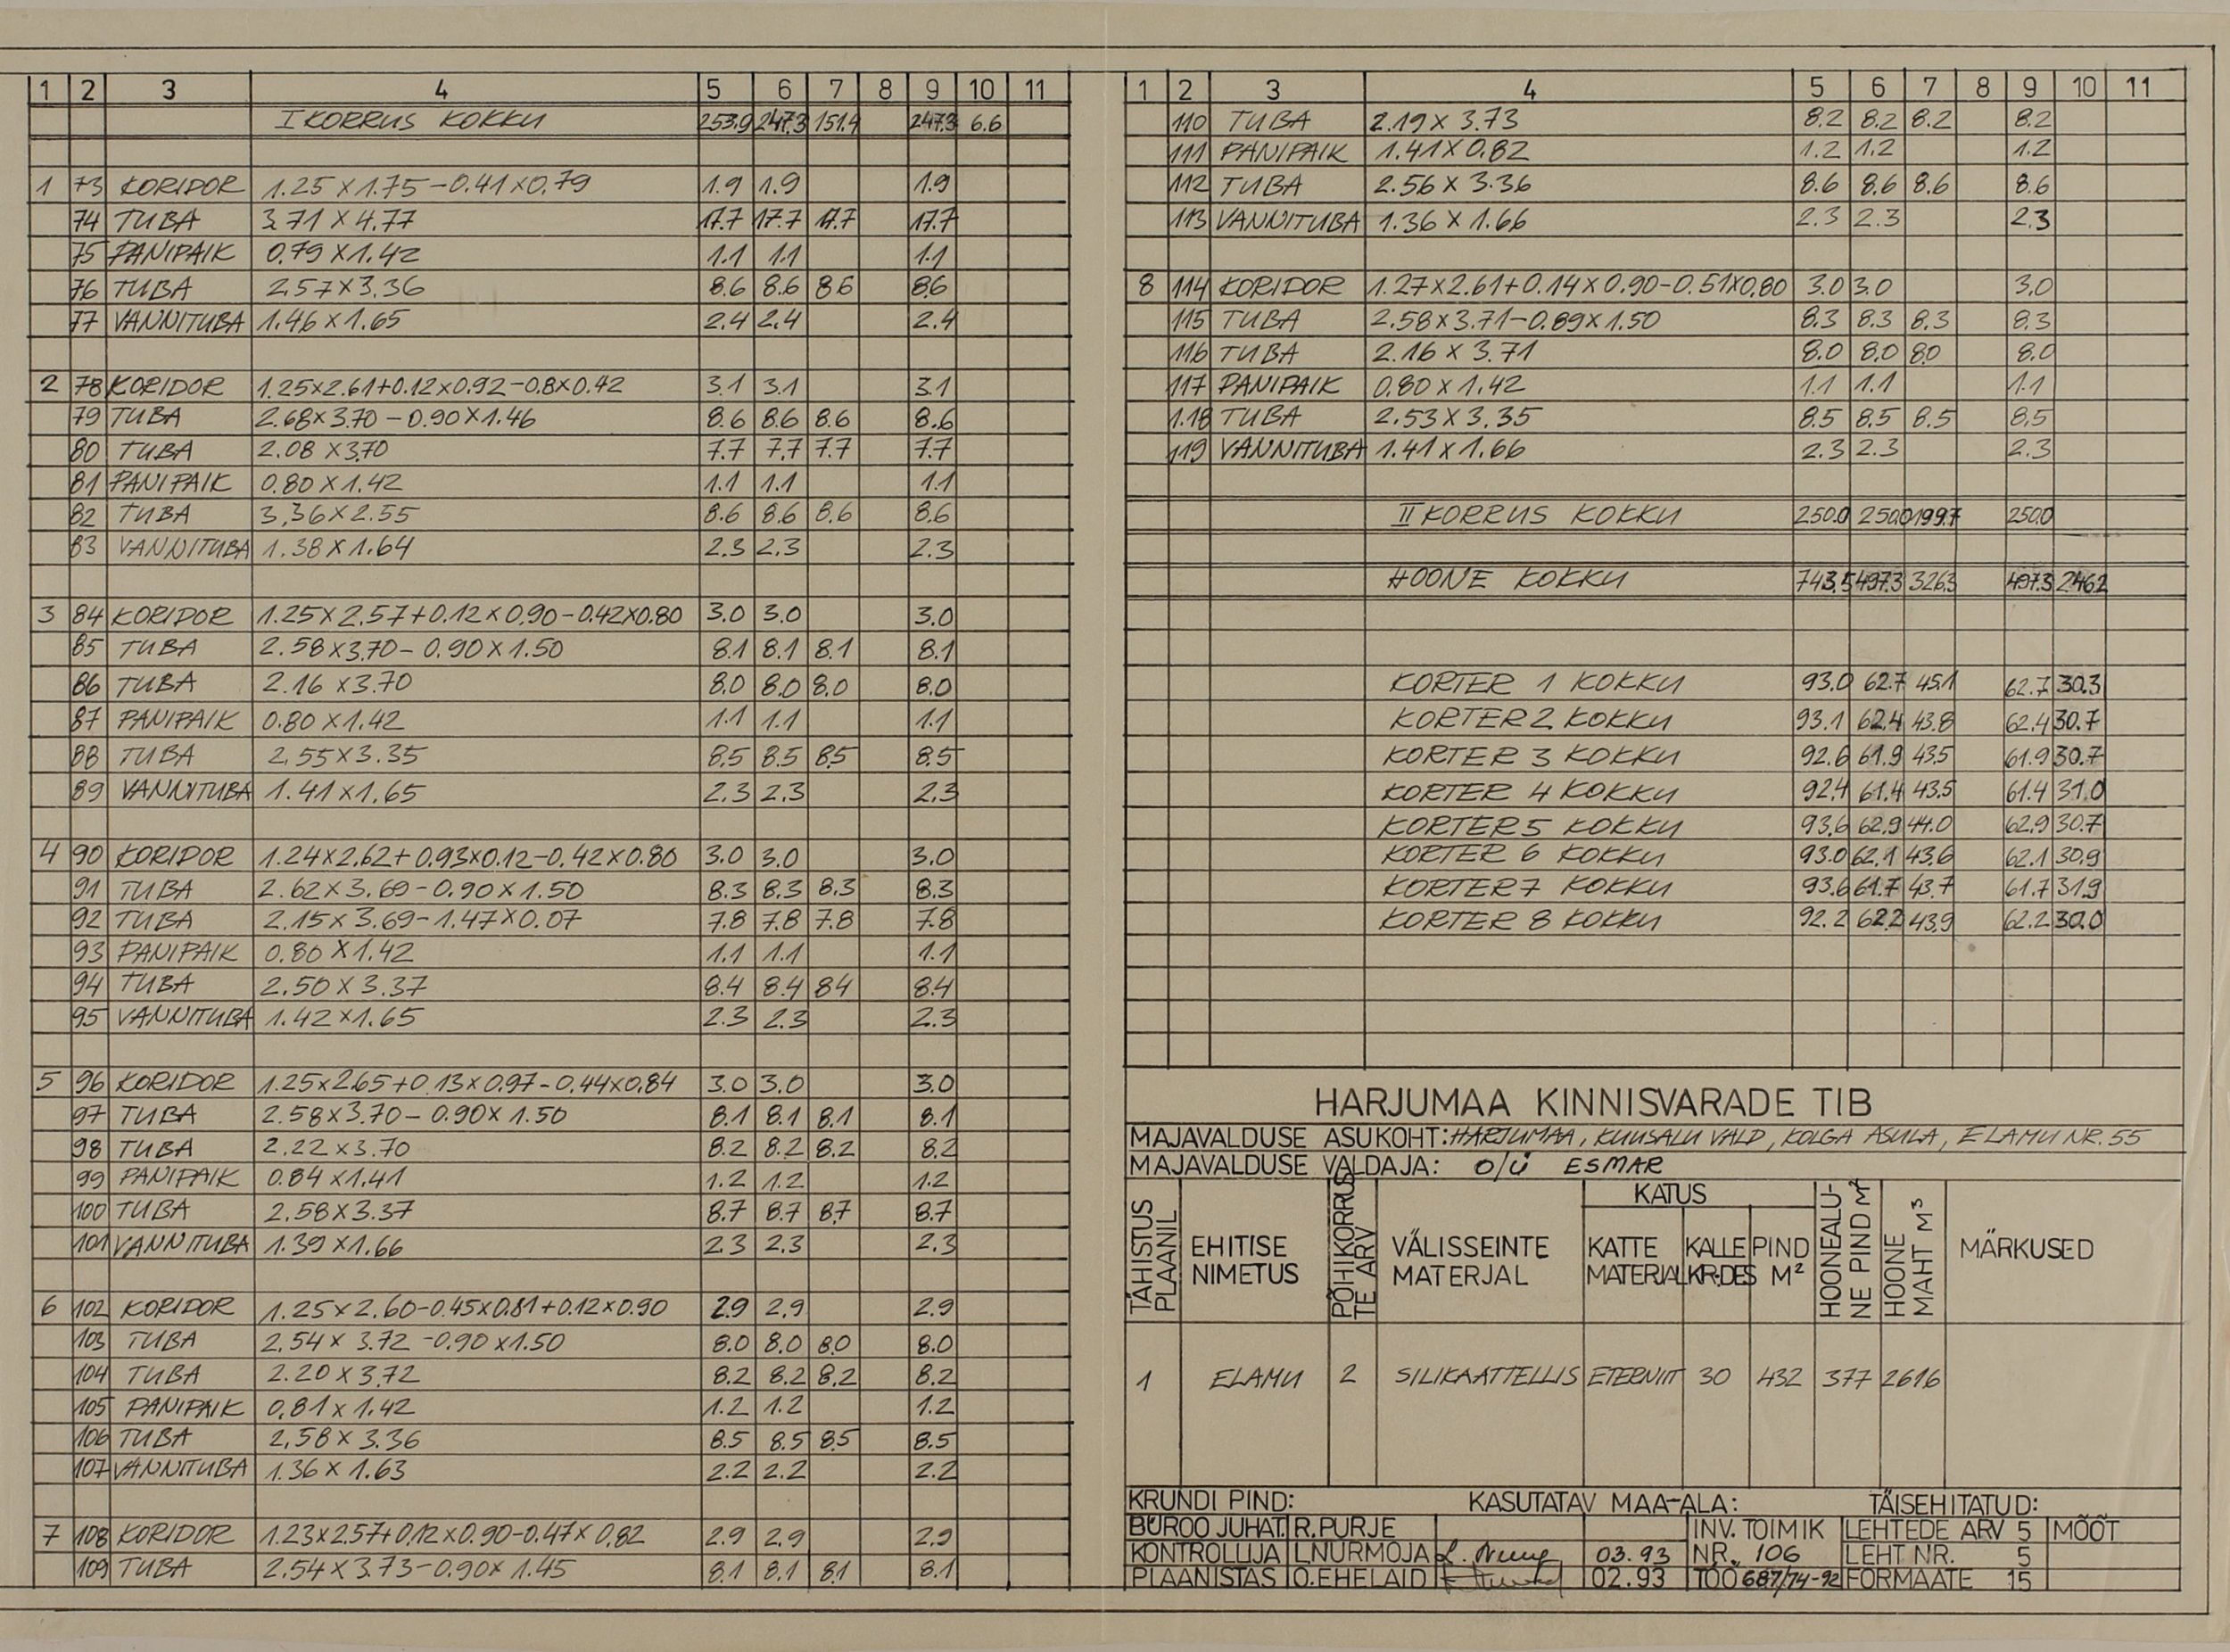 1 2 3 4 5 6 7 8 9 10 11
I KORRUS KOKKU 253.9 247.3 151.4 247.3 6.6
1 73 KORIDOR 1.25 x 1.75 - 0.41 x 0.79 1.9 1.9 1.9
74 TUBA 3.71 x 4.77 17.7 17.7 17.7 17.7
75 PANIPAIK 0.79 x 1.42 1.1 1.1 1.1
76 TUBA 2.57 x 3.36 8.6 8.6 8.6 8.6
77 VANNITUBA 1.46 x 1.65 2.4 2.4 2.4
2 78 KORIDOR 1.25x2.61+0.12x0.92-0.8x0.42 3.1 3.1 3.1
79 TUBA 2.68x3.70 - 0.90x1.46 8.6 8.6 8.6 8.6
80 TUBA 2.08 x3.70 7.7 7.7 7.7 7.7
81 PANIPAIK 0.80 x 1.42 1.1 1.1 1.1
82 TUBA 3,36 x 2.55 8.6 8.6 8.6 8.6
83 VANNITUBA 1.38 x 1.64 2.3 2.3 2.3
3 84 KORIDOR 1.25x 2.57+0.12x0.90-0.42x0.80 3.0 3.0 3.0
85 TUBA 2.58x3.70 - 0.90 x 1.50 8.1 8.1 8.1 8.1
86 TUBA 2.16 x3.70 8.0 8.0 8.0 8.0
87 PANIPAIK 0.80 x 1.42 1.1 1.1 1.1
88 TUBA 2.55 x 3.35 8.5 8.5 8.5 8.5
89 VANNITUBA 1.41 x1.65 2.3 2.3 2.3
4 90 KORIDOR 1.24x2.62+ 0.93x0.12-0.42x0.80 3.0 3.0 3.0
91 TUBA 2.62x3.69 - 0.90 x 1.50 8.3 8.3 8.3 8.3
92 TUBA 2.15x 3.69 - 1.47 x 0.07 7.8 7.8 7.8 7.8
93 PANIPAIK 0.80 x 1.42 1.1 1.1 1.1
94 TUBA 2.50 x 3.37 8.4 8.4 8.4 8.4
95 VANNITUBA 1.42 x1.65 2.3 2.3 2.3
5 96 KORIDOR 1.25x2.65+0.13x0.97-0.44x0.84 3.0 3.0 3.0
97 TUBA 2.58x3.70 - 0.90x 1.50 8.1 8.1 8.1 8.1
98 TUBA 2.22 x3.70 8.2 8.2 8.2 8.2
99 PANIPAIK 0.84 x1.41 1.2 1.2 1.2
100 TUBA 2.58x3.37 8.7 8.7 8.7 8.7
101 VANNITUBA 1.39 x1.66 2.3 2.3 2.3
6 102 KORIDOR 1.25x 2.60-0.45x0.81+0.12x0.90 2.9 2.9 2.9
103 TUBA 2.54x 3.72 -0.90 x1.50 8.0 8.0 8.0 8.0
104 TUBA 2.20 x 3.72 8.2 8.2 8.2 8.2
105 PANIPAIK 0.81 x 1.42 1.2 1.2 1.2
106 TUBA 2.58 x 3.36 8.5 8.5 8.5 8.5
107 VANNITUBA 1.36 x 1.63 2.2 2.2 2.2
7 108 KORIDOR 1.23x2.57+0.12x0.90-0.47x0.82 2.9 2.9 2.9
109 TUBA 2.54x 3.73-0.90x 1.45 8.1 8.1 8.1 8.1
1 2 3 4 5 6 7 8 9 10 11
110 TUBA 2.19 x 3.73 8.2 8.2 8.2 8.2
111 PANIPAIK 1.41 x 0.82 1.2 1.2 1.2
112 TUBA 2.56 x 3.36 8.6 8.6 8.6 8.6
113 VANNITUBA 1.36 x 1.66 2.3 2.3 2.3
8 114 KORIDOR 1.27x2.61+0.14x0.90-0.51x0.80 3.0 3.0 3.0
115 TUBA 2.58x3.71-0.89x1.50 8.3 8.3 8.3 8.3
116 TUBA 2.16 x 3.71 8.0 8.0 8.0 8.0
117 PANIPAIK 0.80 x 1.42 1.1 1.1 1.1
1.18 TUBA 2.53 x 3.35 8.5 8.5 8.5 8.5
119 VANNITUBA 1.41 x 1.66 2.3 2.3 2.3
II KORRUS KOKKU 250.0 250.0 199.7 250.0
HOONE KOKKU 743.5 497.3 326.3 497.3 246.2
KORTER 1 KOKKU 93.0 62.7 45.1 62.7 30.3
KORTER 2 KOKKU 93.1 62.4 43.8 62.4 30.7
KORTER 3 KOKKU 92.6 61.9 43.5 61.9 30.7
KORTER 4 KOKKU 92.4 61.4 43.5 61.4 31.0
KORTER 5 KOKKU 93.6 62.9 44.0 62.9 30.7
KORTER 6 KOKKU 93.0 62.1 43.6 62.1 30.9
KORTER 7 KOKKU 93.6 61.7 43.7 61.7 31.9
KORTER 8 KOKKU 92.2 62.2 43.9 62.2 30.0
HARJUMAA KINNISVARADE TIB
MAJAVALDUSE ASUKOHT: HARJUMAA, KUUSALU VALD, KOLGA ASULA, ELAMU NR. 55
MAJAVALDUSE VALDAJA: O/Ü ESMAR
TÄHISTUS PLAANIL
EHITISE NIMETUS
PÕHIKORRUSTE ARV
VÄLISSEINTE MATERJAL
KATUS
KATTE MATERJAL
KALLE KR-DES
PIND M²
HOONEALU-NE PIND M²
HOONE MAHT M³
MÄRKUSED
1 ELAMU 2 SILIKAATTELLIS ETERNIIT 30 432 377 2616
KRUNDI PIND: KASUTATAV MAA-ALA: TÄISEHITATUD:
BÜROO JUHAT. R.PURJE INV. TOIMIK LEHTEDE ARV 5 MÕÕT
KONTROLLIJA L.NURMOJA 03.93 NR. 106 LEHT NR. 5
PLAANISTAS O.EHELAID 02.93 TÖÖ 687/74-92 FORMAATE 15